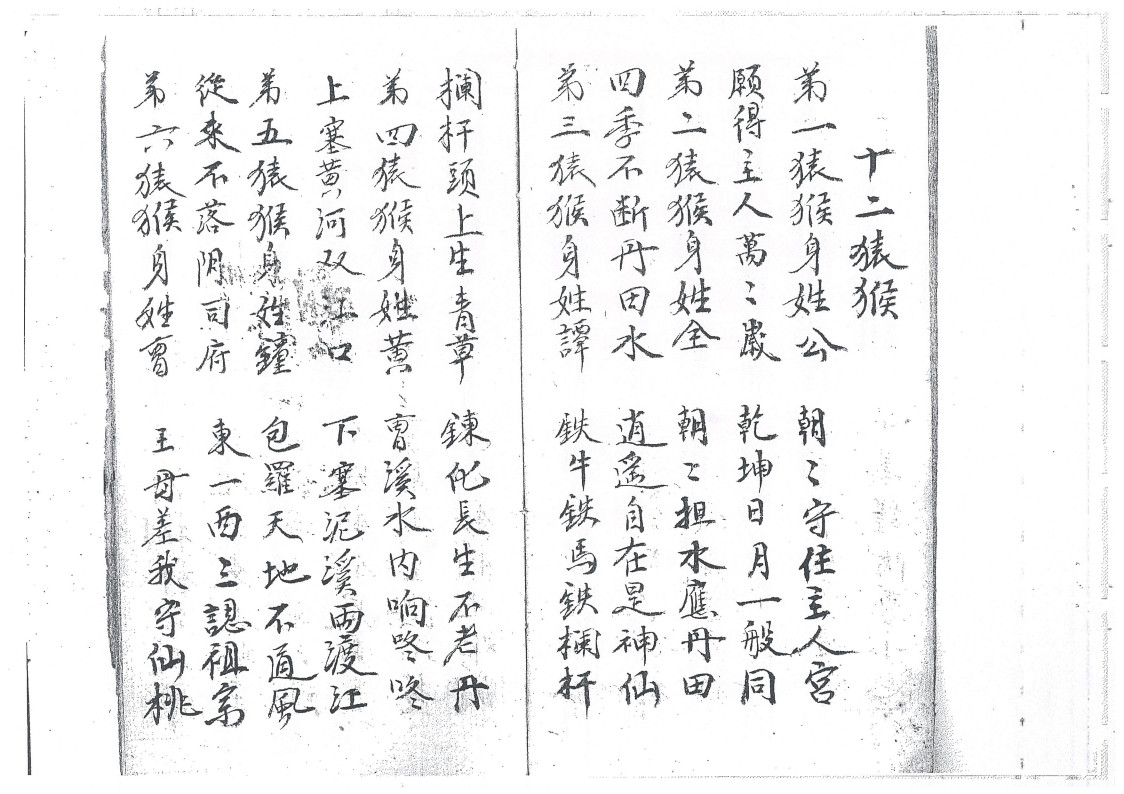 十二猿猴
第一猿猴身姓公　朝〻守住主人宮
願得主人萬〻歲　乾坤日月一般同
第二猿猴身姓全　朝〻担水應丹田
四季不断丹田水　逍遙自在是神仙
第三猿猴身姓譚　鉄牛鉄馬鉄欄杆
攔杆頭上生青草　鍊化長生不老丹
第四猿猴身姓黄〻　曹溪水内响咚咚
上塞黄河双江口　下塞泥溪兩渡江
第五猿猴身姓鐘　包羅天地不通風
從來不落阴司府　東一西三認祖宗
第六猿猴身姓　王母差我守仙桃